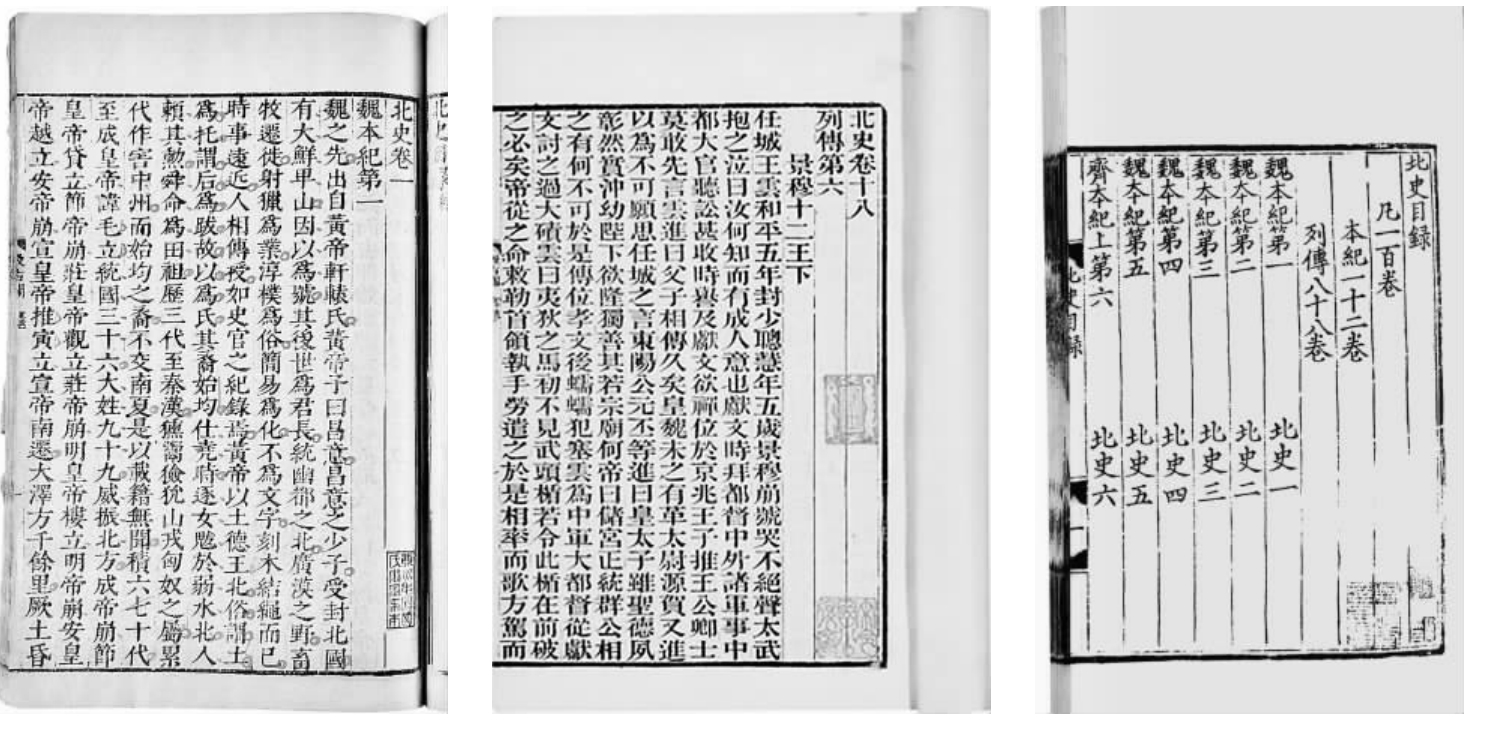 北史卷一
魏本紀第一
魏之先出自黃帝軒轅氏黃帝子曰昌意昌意之少子受封北國
有大鮮卑山因以爲號其後世爲君長統幽都之北廣漠之野畜
牧遷徙射獵爲業淳樸爲俗簡易爲化不爲文字刻木結繩而已
時事遠近人相傳授如史官之紀錄焉黃帝以土德王北俗謂土
爲托謂后爲跋故以爲氏其裔始均仕堯時逐女魃於弱水北人
賴其勲舜命爲田祖歷三代至秦漢獯鬻獫狁山戎匈奴之屬累
代作害中州而始均之裔不交南夏是以載籍無聞積六七十代
至成皇帝諱毛立統國三十六大姓九十九威振北方成帝崩節
皇帝貸立節帝崩莊皇帝觀立莊帝崩明皇帝樓立明帝崩安皇
帝越立安帝崩宣皇帝推寅立宣帝南遷大澤方千餘里厥土昏
北史卷十八
列傳第六
景穆十二王下
任城王雲和平五年封少聰慧年五歲景穆崩號哭不絕聲太武
抱之泣曰汝何知而有成人意也獻文時拜都督中外諸軍事中
都大官聽訟甚收時譽及獻文欲禪位於京兆王子推王公卿士
莫敢先言雲進曰父子相傳久矣皇魏未之有革太尉源賀又進
以爲不可願思任城之言東陽公元丕等進曰皇太子雖聖德夙
彰然實沖幼陛下欲隆獨善其若宗廟何帝曰儲宮正統群公相
之有何不可於是傳位孝文後蠕蠕犯塞雲爲中軍大都督從獻
文討之過大磧雲曰夷狄之馬初不見武頭楯若令此楯在前破
之必矣帝從之命敕勒首領執手勞遣之於是相率而歌方駕而
北史目録
凡一百卷
本紀一十二卷
列傳八十八卷
魏本紀第一 北史一
魏本紀第二 北史二
魏本紀第三 北史三
魏本紀第四 北史四
魏本紀第五 北史五
齊本紀上第六 北史六
北史目録